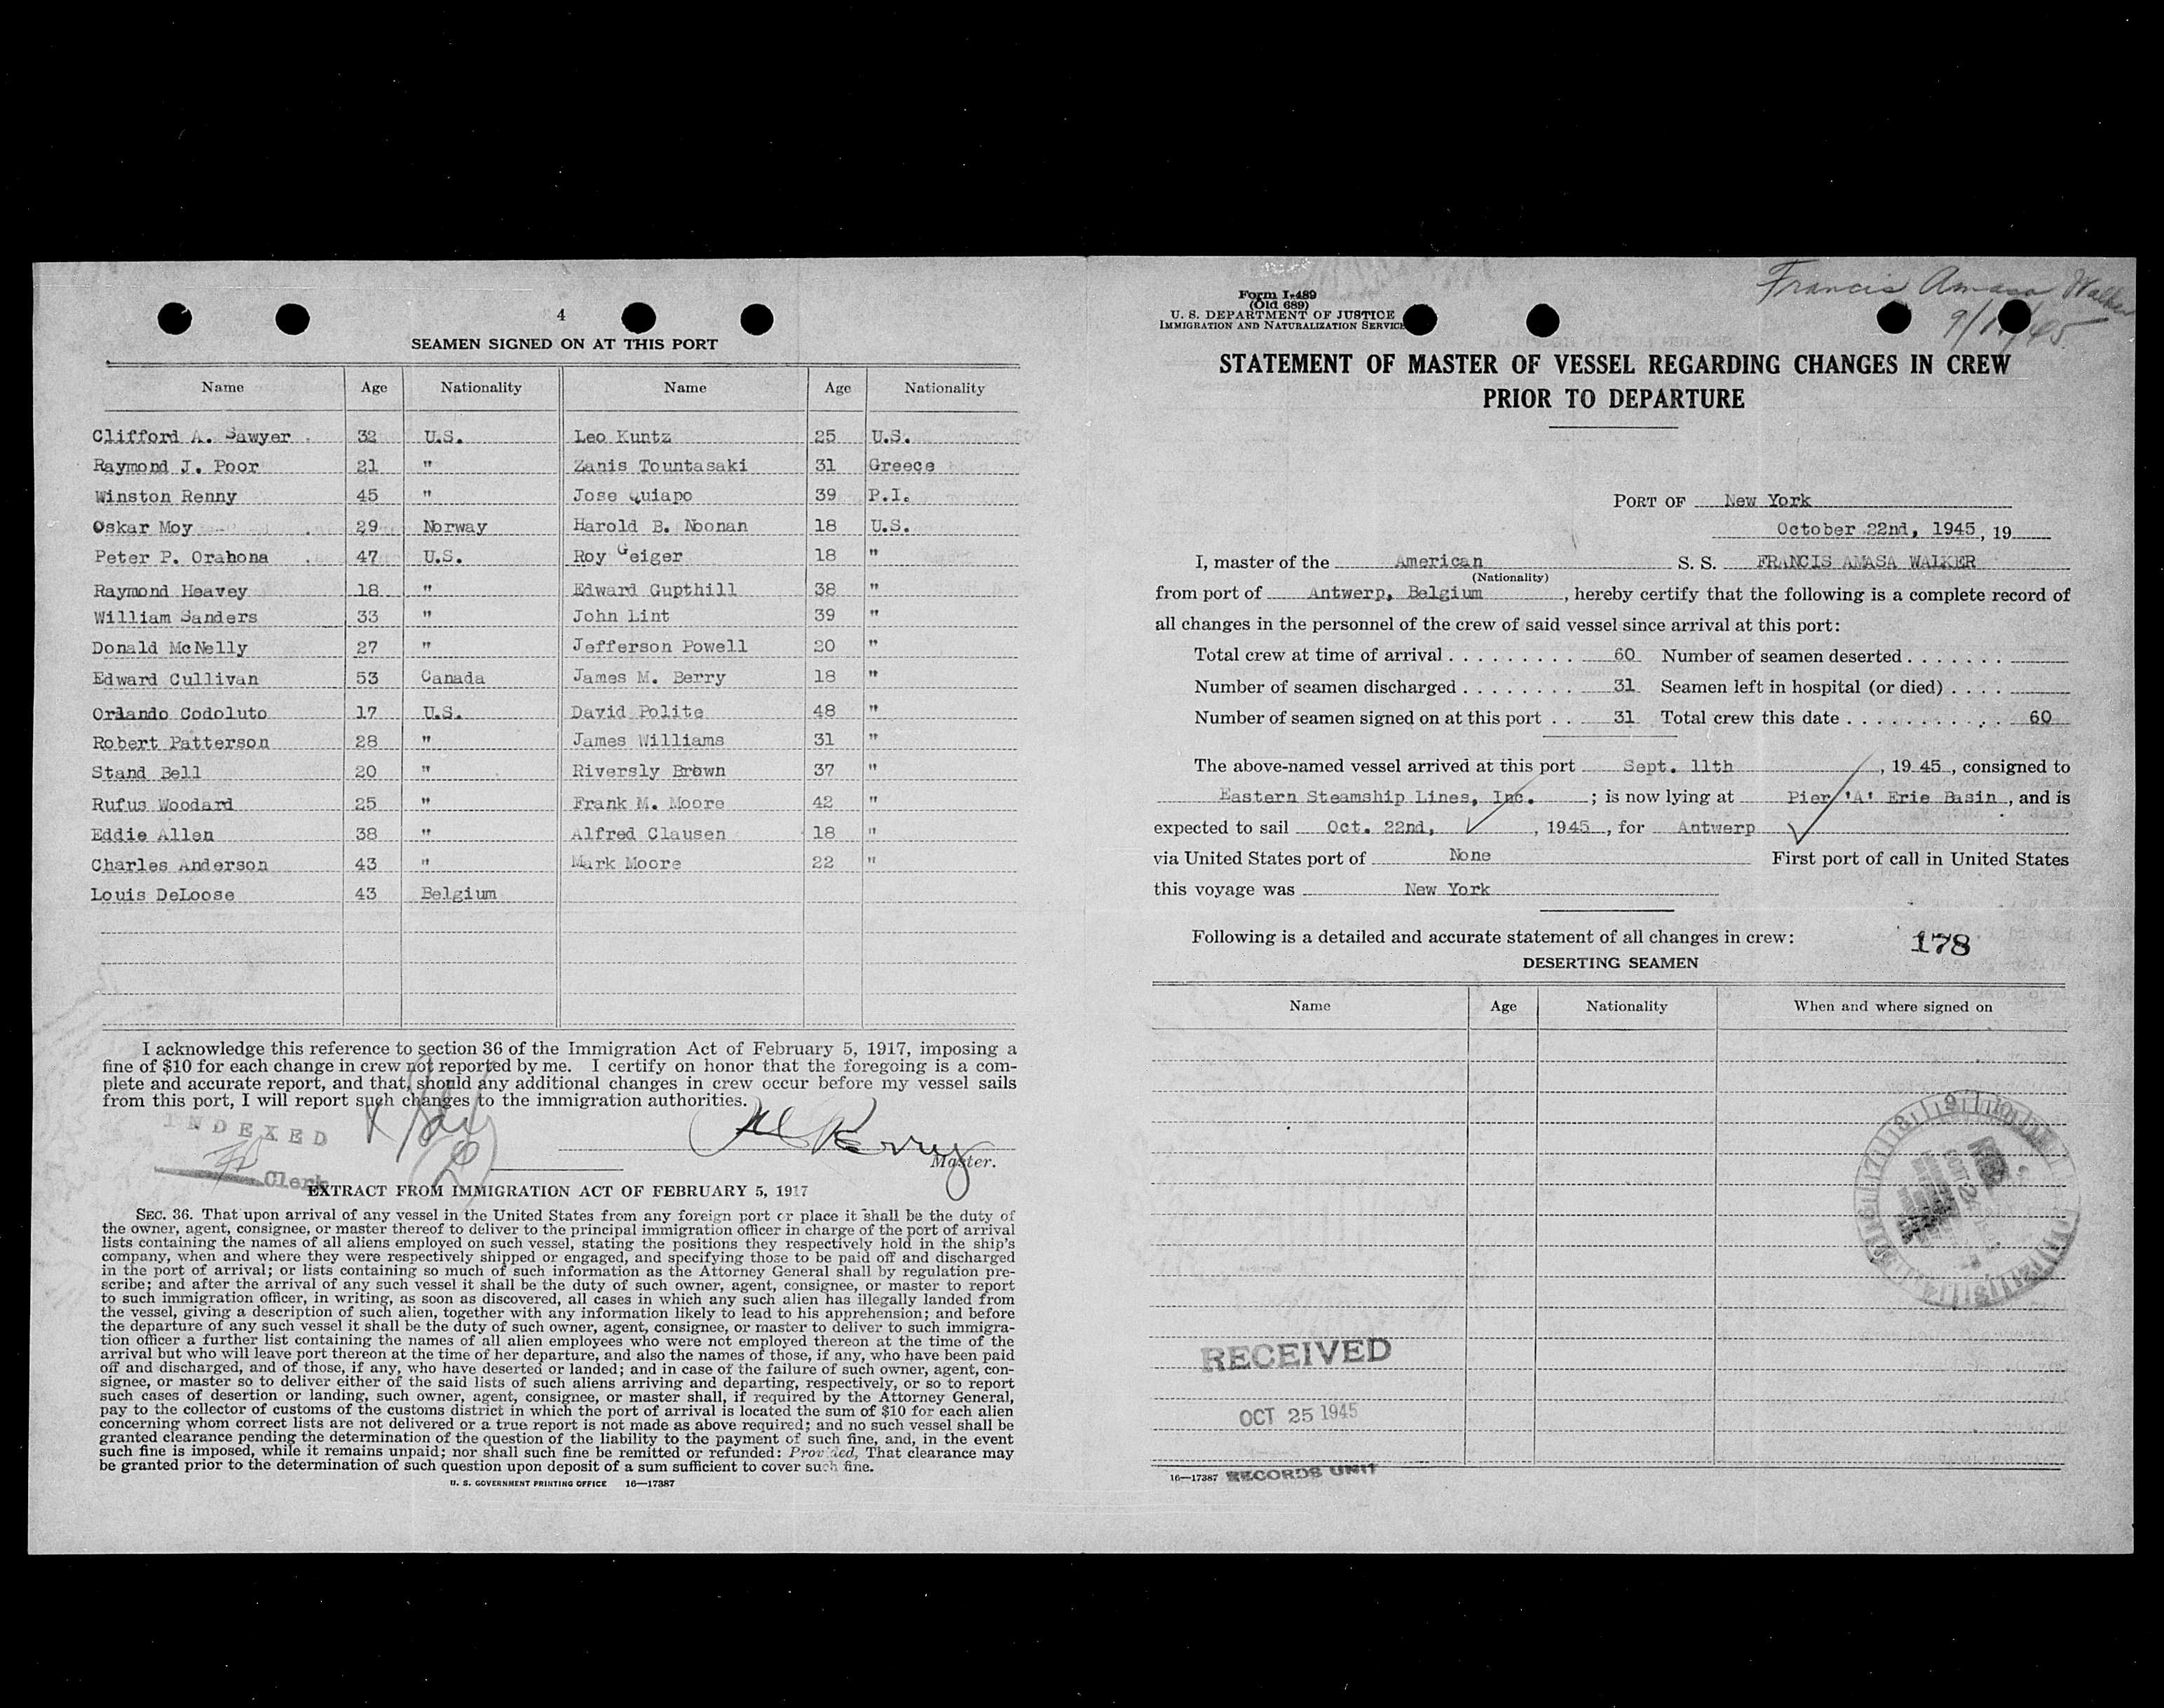 4
SEAMEN SIGNED ON AT THIS PORT
Name Age Nationality Name Age Nationality
Clifford A. Sawyer 32 U.S. Leo Kuntz 25 U.S.
Raymond J. Poor 21 " Zanis Tountasaki 31 Greece
Winston Renny 45 " Jose Quiapo 39 P.I.
Oskar Moy 29 Norway Harold B. Noonan 18 U.S.
Peter P. Orahona 47 U.S. Roy Geiger 18 "
Raymond Heavey 18 " Edward Gupthill 38 "
William Sanders 33 " John Lint 39 "
Donald McNelly 27 " Jefferson Powell 20 "
Edward Cullivan 53 Canada James M. Berry 18 "
Orlando Codoluto 17 U.S. David Polite 48 "
Robert Patterson 28 " James Williams 31 "
Stand Bell 20 " Riversly Brown 37 "
Rufus Woodard 25 " Frank M. Moore 42 "
Eddie Allen 38 " Alfred Clausen 18 "
Charles Anderson 43 " Mark Moore 22 "
Louis DeLoose 43 Belgium
I acknowledge this reference to section 36 of the Immigration Act of February 5, 1917, imposing a
fine of $10 for each change in crew not reported by me. I certify on honor that the foregoing is a com-
plete and accurate report, and that, should any additional changes in crew occur before my vessel sails
from this port, I will report such changes to the immigration authorities.
INDEXED
Clerk
Master.
EXTRACT FROM IMMIGRATION ACT OF FEBRUARY 5, 1917
SEC. 36. That upon arrival of any vessel in the United States from any foreign port or place it shall be the duty of
the owner, agent, consignee, or master thereof to deliver to the principal immigration officer in charge of the port of arrival
lists containing the names of all aliens employed on such vessel, stating the positions they respectively hold in the ship's
company, when and where they were respectively shipped or engaged, and specifying those to be paid off and discharged
in the port of arrival; or lists containing so much of such information as the Attorney General shall by regulation pre-
scribe; and after the arrival of any such vessel it shall be the duty of such owner, agent, consignee, or master to report
to such immigration officer, in writing, as soon as discovered, all cases in which any such alien has illegally landed from
the vessel, giving a description of such alien, together with any information likely to lead to his apprehension; and before
the departure of any such vessel it shall be the duty of such owner, agent, consignee, or master to deliver to such immigra-
tion officer a further list containing the names of all alien employees who were not employed thereon at the time of the
arrival but who will leave port thereon at the time of her departure, and also the names of those, if any, who have been paid
off and discharged, and of those, if any, who have deserted or landed; and in case of the failure of such owner, agent, con-
signee, or master so to deliver either of the said lists of such aliens arriving and departing, respectively, or so to report
such cases of desertion or landing, such owner, agent, consignee, or master shall, if required by the Attorney General,
pay to the collector of customs of the customs district in which the port of arrival is located the sum of $10 for each alien
concerning whom correct lists are not delivered or a true report is not made as above required; and no such vessel shall be
granted clearance pending the determination of the question of the liability to the payment of such fine, and, in the event
such fine is imposed, while it remains unpaid; nor shall such fine be remitted or refunded: Provided, That clearance may
be granted prior to the determination of such question upon deposit of a sum sufficient to cover such fine.
U. S. GOVERNMENT PRINTING OFFICE 16—17387
Francis Amasa Walker
Form I-489
(Old 689)
U. S. DEPARTMENT OF JUSTICE
IMMIGRATION AND NATURALIZATION SERVICE
STATEMENT OF MASTER OF VESSEL REGARDING CHANGES IN CREW
PRIOR TO DEPARTURE
PORT OF New York
October 22nd, 1945, 19
I, master of the American S. S. FRANCIS AMASA WALKER
(Nationality)
from port of Antwerp, Belgium, hereby certify that the following is a complete record of
all changes in the personnel of the crew of said vessel since arrival at this port:
Total crew at time of arrival . . . . . . . . . 60 Number of seamen deserted . . . . . . .
Number of seamen discharged . . . . . . . . 31 Seamen left in hospital (or died) . . . .
Number of seamen signed on at this port . . 31 Total crew this date . . . . . . . . . . . 60
The above-named vessel arrived at this port Sept. 11th, 1945, consigned to
Eastern Steamship Lines, Inc.; is now lying at Pier 'A' Erie Basin, and is
expected to sail Oct. 22nd, , 1945, for Antwerp
via United States port of None First port of call in United States
this voyage was New York
Following is a detailed and accurate statement of all changes in crew:
178
DESERTING SEAMEN
Name Age Nationality When and where signed on
RECEIVED
OCT 25 1945
16—17387 RECORDS UNIT